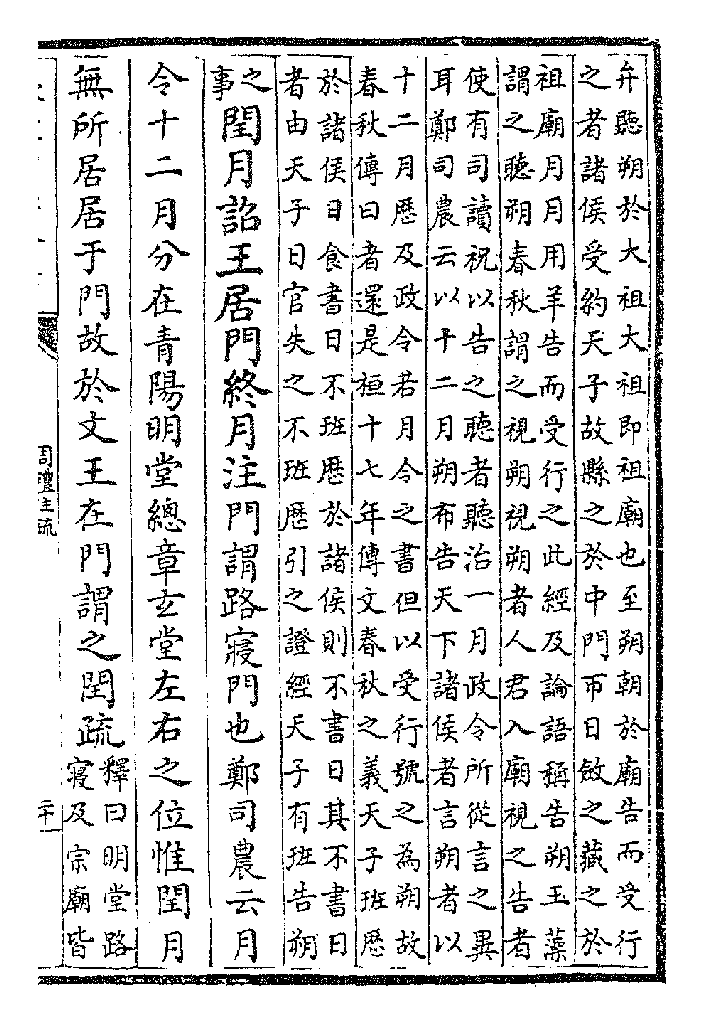 弁聽朔於大祖大祖即祖廟也至朔朝於廟告而受行
之者諸侯受約天子故縣之於中門帀日斂之藏之於
祖廟月月用羊告而受行之此經及論語稱告朔玉藻
謂之聽朔春秋謂之視朔視朔者人君入廟視之告者
使有司讀祝以告之聽者聽治一月政令所從言之異
耳鄭司農云以十二月朔布告天下諸侯者言朔者以
十二月歷及政令若月令之書但以受行號之為朔故
春秋傳曰者還是桓十七年傳文春秋之義天子班歷
於諸侯日食書日不班歷於諸侯則不書日其不書日
者由天子日官失之不班歷引之證經天子有班告朔
之事閏月詔王居門終月注門謂路寢門也鄭司農云月
令十二月分在青陽明堂總章玄堂左右之位惟閏月
無所居居于門故於文王在門謂之閏疏釋曰明堂路
寢及宗廟皆
周禮注疏